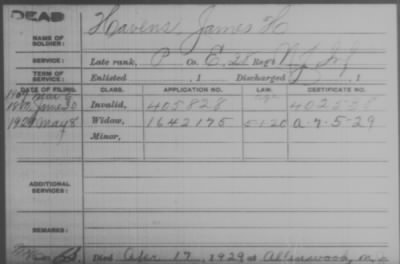 DEAD
Havens, James H
NAME OF SOLDIER:
SERVICE: Late rank, P Co. E, 28 Reg't N.J. Inf
TERM OF SERVICE: Enlisted , 1 Discharged , 1
DATE OF FILING. CLASS. APPLICATION NO. LAW. CERTIFICATE NO.
Invalid, 405828
1929 May 8 Widow, 1642175 5-1-20 a. 7-5-29
Minor,
ADDITIONAL SERVICES:
REMARKS:
Died Apr 17, 1929 at Allenwood, N.J.